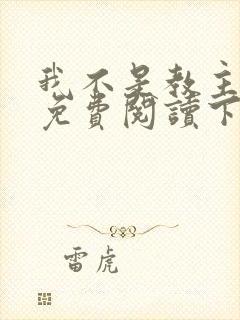 我不是教主
免費閱讀下
雷虎